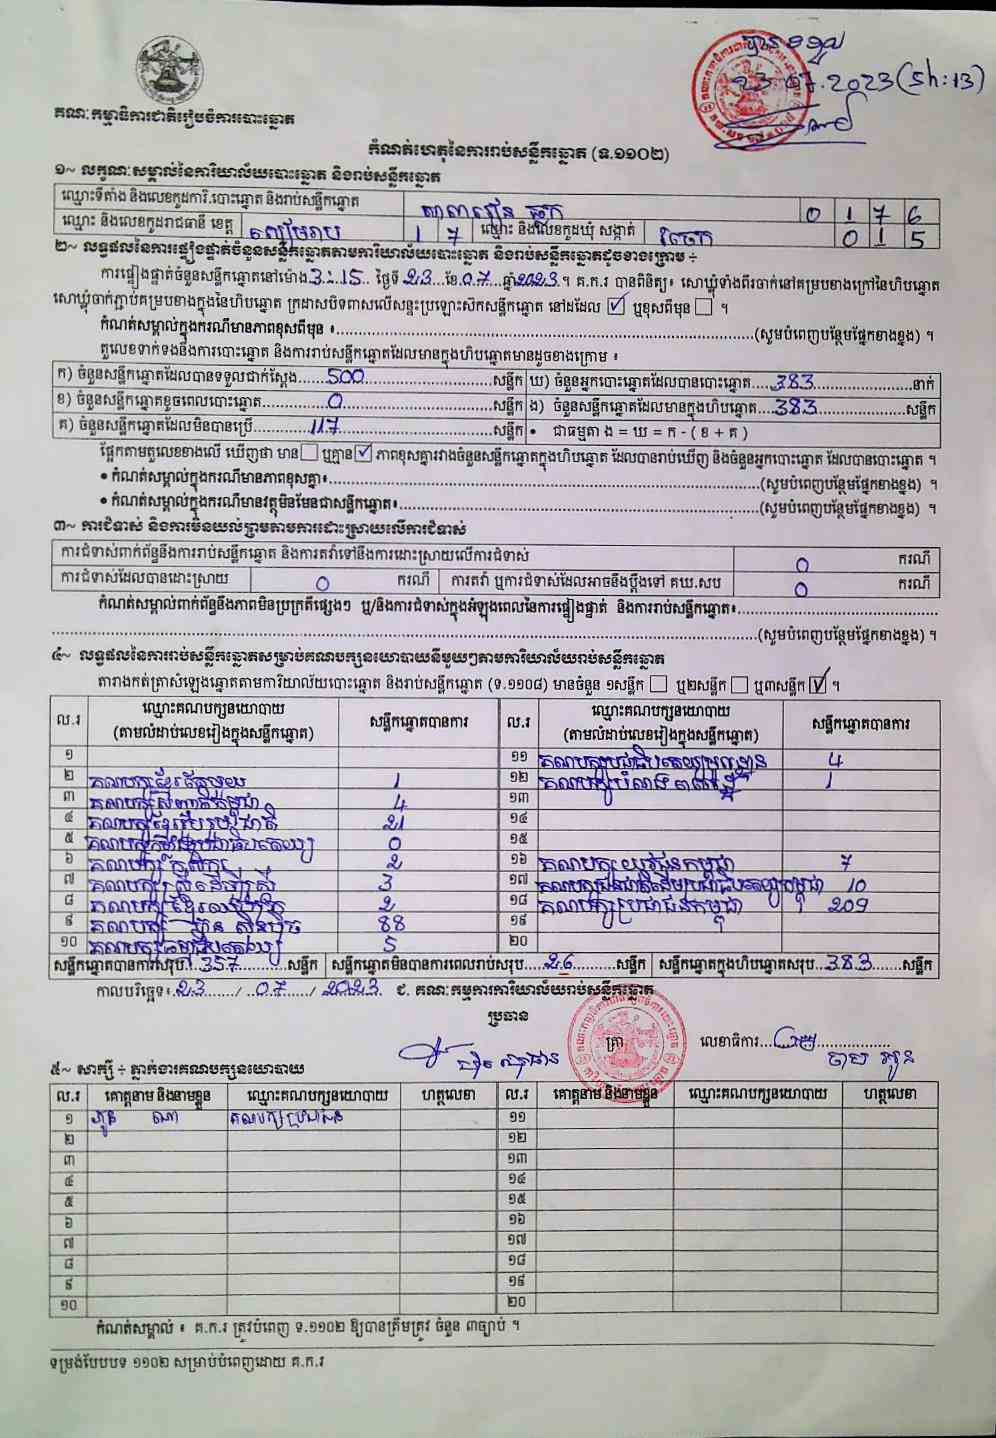 បានទទួល
23.07.2023 (5h:13)
គណៈកម្មាធិការជាតិរៀបចំការបោះឆ្នោត
កំណត់ហេតុនៃការរាប់សន្លឹកឆ្នោត (ទ.១១០២)
១~ លក្ខណៈសម្គាល់នៃការិយាល័យបោះឆ្នោត និងរាប់សន្លឹកឆ្នោត
ឈ្មោះទីតាំង និងលេខកូដការិ.បោះឆ្នោត និងរាប់សន្លឹកឆ្នោត 0 1 7 6
ឈ្មោះ និងលេខកូដរាជធានី ខេត្ត សៀមរាប 1 7 ឈ្មោះ និងលេខកូដឃុំ សង្កាត់ 0 1 5
២~ លទ្ធផលនៃការផ្ទៀងផ្ទាត់ចំនួនសន្លឹកឆ្នោតតាមការិយាល័យបោះឆ្នោត និងរាប់សន្លឹកឆ្នោតដូចខាងក្រោម ÷
ការផ្ទៀងផ្ទាត់ចំនួនសន្លឹកឆ្នោតនៅម៉ោង 3:15 ថ្ងៃទី 23 ខែ 07 ឆ្នាំ 2023 ។ គ.ក.រ បានពិនិត្យ៖ សោឃ្លុំទាំងពីរចាក់នៅគម្របខាងក្រៅនៃហិបឆ្នោត
សោឃ្លុំចាក់ភ្ជាប់គម្របខាងក្នុងនៃហិបឆ្នោត ក្រដាសបិទពាសលើសន្ទះប្រឡោះសឹកសន្លឹកឆ្នោត នៅដដែល ☑ ឬខុសពីមុន ☐ ។
កំណត់សម្គាល់ក្នុងករណីមានភាពខុសពីមុន ៖ (សូមបំពេញបន្ថែមផ្នែកខាងខ្នង) ។
តួលេខទាក់ទងនឹងការបោះឆ្នោត និងការរាប់សន្លឹកឆ្នោតដែលមានក្នុងហិបឆ្នោតមានដូចខាងក្រោម ៖
ក) ចំនួនសន្លឹកឆ្នោតដែលបានទទួលជាក់ស្តែង 500 សន្លឹក ឃ) ចំនួនអ្នកបោះឆ្នោតដែលបានបោះឆ្នោត 383 នាក់
ខ) ចំនួនសន្លឹកឆ្នោតខូចពេលបោះឆ្នោត 0 សន្លឹក ង) ចំនួនសន្លឹកឆ្នោតដែលមានក្នុងហិបឆ្នោត 383 សន្លឹក
គ) ចំនួនសន្លឹកឆ្នោតដែលមិនបានប្រើ 117 សន្លឹក • ជាធម្មតា ង = ឃ = ក - ( ខ + គ )
ផ្អែកតាមតួលេខខាងលើ ឃើញថា មាន ☐ ឬគ្មាន ☑ ភាពខុសគ្នារវាងចំនួនសន្លឹកឆ្នោតក្នុងហិបឆ្នោត ដែលបានរាប់ឃើញ និងចំនួនអ្នកបោះឆ្នោត ដែលបានបោះឆ្នោត ។
• កំណត់សម្គាល់ក្នុងករណីមានភាពខុសគ្នា៖ (សូមបំពេញបន្ថែមផ្នែកខាងខ្នង) ។
• កំណត់សម្គាល់ក្នុងករណីមានវត្ថុមិនមែនជាសន្លឹកឆ្នោត៖ (សូមបំពេញបន្ថែមផ្នែកខាងខ្នង) ។
៣~ ការជំទាស់ និងការមិនយល់ព្រមតាមការដោះស្រាយលើការជំទាស់
ការជំទាស់ពាក់ព័ន្ធនឹងការរាប់សន្លឹកឆ្នោត និងការតវ៉ាទៅនឹងការដោះស្រាយលើការជំទាស់ 0 ករណី
ការជំទាស់ដែលបានដោះស្រាយ 0 ករណី ការតវ៉ា ឬការជំទាស់ដែលអាចនឹងប្តឹងទៅ គឃ.សប 0 ករណី
កំណត់សម្គាល់ពាក់ព័ន្ធនឹងភាពមិនប្រក្រតីផ្សេងៗ ឬ/និងការជំទាស់ក្នុងអំឡុងពេលនៃការផ្ទៀងផ្ទាត់ និងការរាប់សន្លឹកឆ្នោត៖
(សូមបំពេញបន្ថែមផ្នែកខាងខ្នង) ។
៤~ លទ្ធផលនៃការរាប់សន្លឹកឆ្នោតសម្រាប់គណបក្សនយោបាយនីមួយៗតាមការិយាល័យរាប់សន្លឹកឆ្នោត
តារាងកត់ត្រាសំឡេងឆ្នោតតាមការិយាល័យបោះឆ្នោត និងរាប់សន្លឹកឆ្នោត (ទ.១១០៨) មានចំនួន ១សន្លឹក ☐ ឬ២សន្លឹក ☐ ឬ៣សន្លឹក ☑ ។
ល.រ ឈ្មោះគណបក្សនយោបាយ សន្លឹកឆ្នោតបានការ ល.រ ឈ្មោះគណបក្សនយោបាយ សន្លឹកឆ្នោតបានការ
(តាមលំដាប់លេខរៀងក្នុងសន្លឹកឆ្នោត) (តាមលំដាប់លេខរៀងក្នុងសន្លឹកឆ្នោត)
១ ១១ គណបក្សប្រជាធិបតេយ្យមូលដ្ឋាន 4
២ គណបក្សខ្មែរតែមួយ 1 ១២ គណបក្ស 1
៣ គណបក្សសញ្ជាតិកម្ពុជា 4 ១៣
៤ គណបក្សខ្មែររួបរួមជាតិ 21 ១៤
៥ គណបក្សប្រជាធិបតេយ្យ 0 ១៥
៦ គណបក្សកសិករ 2 ១៦ គណបក្សយុវជនកម្ពុជា 7
៧ គណបក្សស្ត្រីដើម្បីស្ត្រី 3 ១៧ គណបក្សជនជាតិដើមប្រជាធិបតេយ្យកម្ពុជា 10
៨ គណបក្សខ្មែរ 2 ១៨ គណបក្សប្រជាជនកម្ពុជា 209
៩ គណបក្ស ហ្វ៊ុនស៊ិនប៉ិច 88 ១៩
១០ គណបក្សធម្មាធិបតេយ្យ 5 ២០
សន្លឹកឆ្នោតបានការសរុប 357 សន្លឹក សន្លឹកឆ្នោតមិនបានការពេលរាប់សរុប 26 សន្លឹក សន្លឹកឆ្នោតក្នុងហិបឆ្នោតសរុប 383 សន្លឹក
កាលបរិច្ឆេទ៖ 23 / 07 / 2023 ជ. គណៈកម្មការការិយាល័យរាប់សន្លឹកឆ្នោត
ប្រធាន
ត្រា លេខាធិការ
៥~ សាក្សី ÷ ភ្នាក់ងារគណបក្សនយោបាយ
ល.រ គោត្តនាម និងនាមខ្លួន ឈ្មោះគណបក្សនយោបាយ ហត្ថលេខា ល.រ គោត្តនាម និងនាមខ្លួន ឈ្មោះគណបក្សនយោបាយ ហត្ថលេខា
១ គណបក្សប្រជាជន ១១
២ ១២
៣ ១៣
៤ ១៤
៥ ១៥
៦ ១៦
៧ ១៧
៨ ១៨
៩ ១៩
១០ ២០
កំណត់សម្គាល់ ៖ គ.ក.រ ត្រូវបំពេញ ទ.១១០២ ឱ្យបានត្រឹមត្រូវ ចំនួន ៣ច្បាប់ ។
ទម្រង់បែបបទ ១១០២ សម្រាប់បំពេញដោយ គ.ក.រ